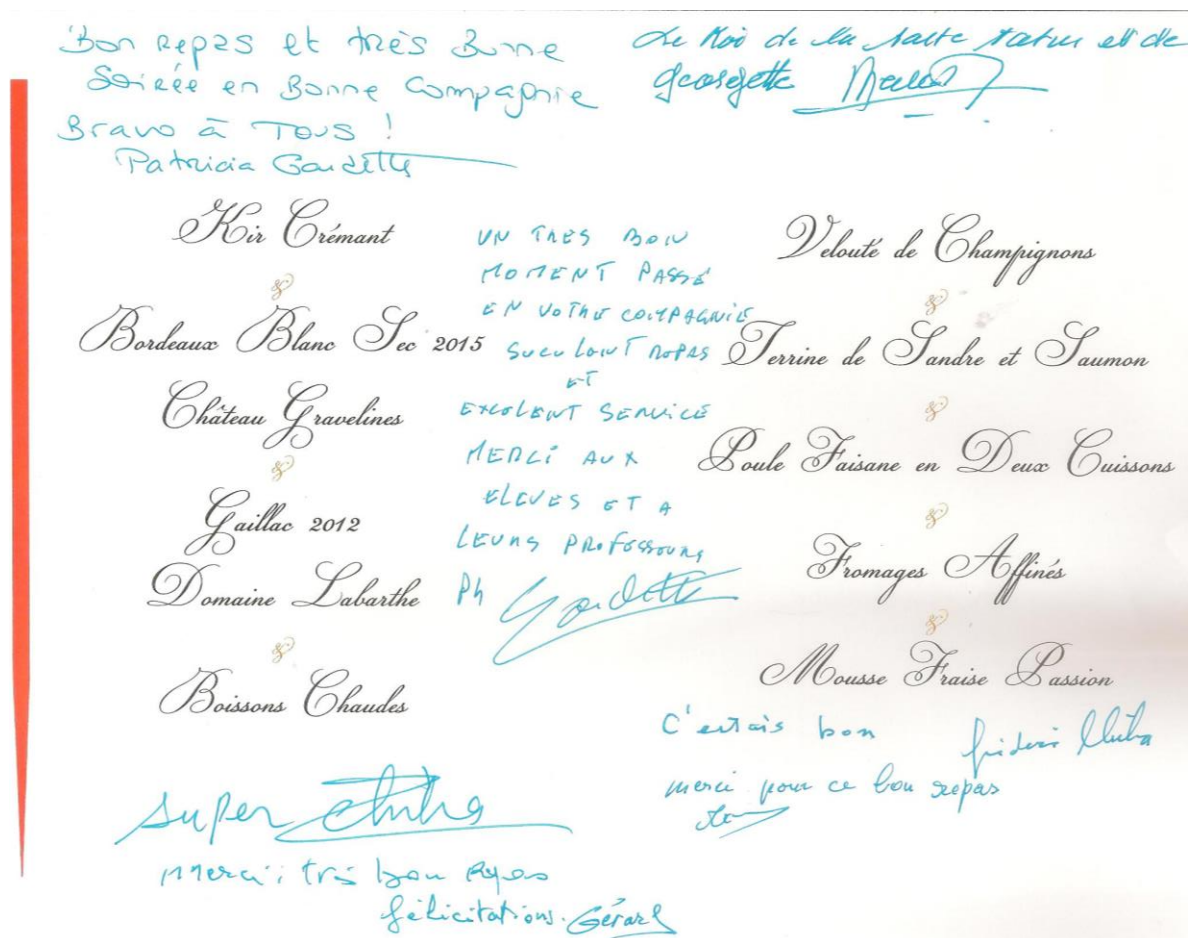 Bon Repas et très Bonne
Soirée en Bonne Compagnie
Bravo à TOUS !
Patricia Gardette
Le Roi de la tarte tatin et de
Georgette
Kir Crémant
Bordeaux Blanc Sec 2015
Château Gravelines
Gaillac 2012
Domaine Labarthe
Boissons Chaudes
UN TRES BON
MOMENT PASSÉ
EN VOTRE COMPAGNIE
SUCULENT REPAS
ET
EXCELENT SERVICE
MERCI AUX
ELEVES ET A
LEURS PROFESSEURS
Ph Gardette
Velouté de Champignons
Terrine de Sandre et Saumon
Poule Faisane en Deux Cuissons
Fromages Affinés
Mousse Fraise Passion
C'etais bon
merci pour ce bon repas
super
Merci, très bon Repas
félicitations. Gérard